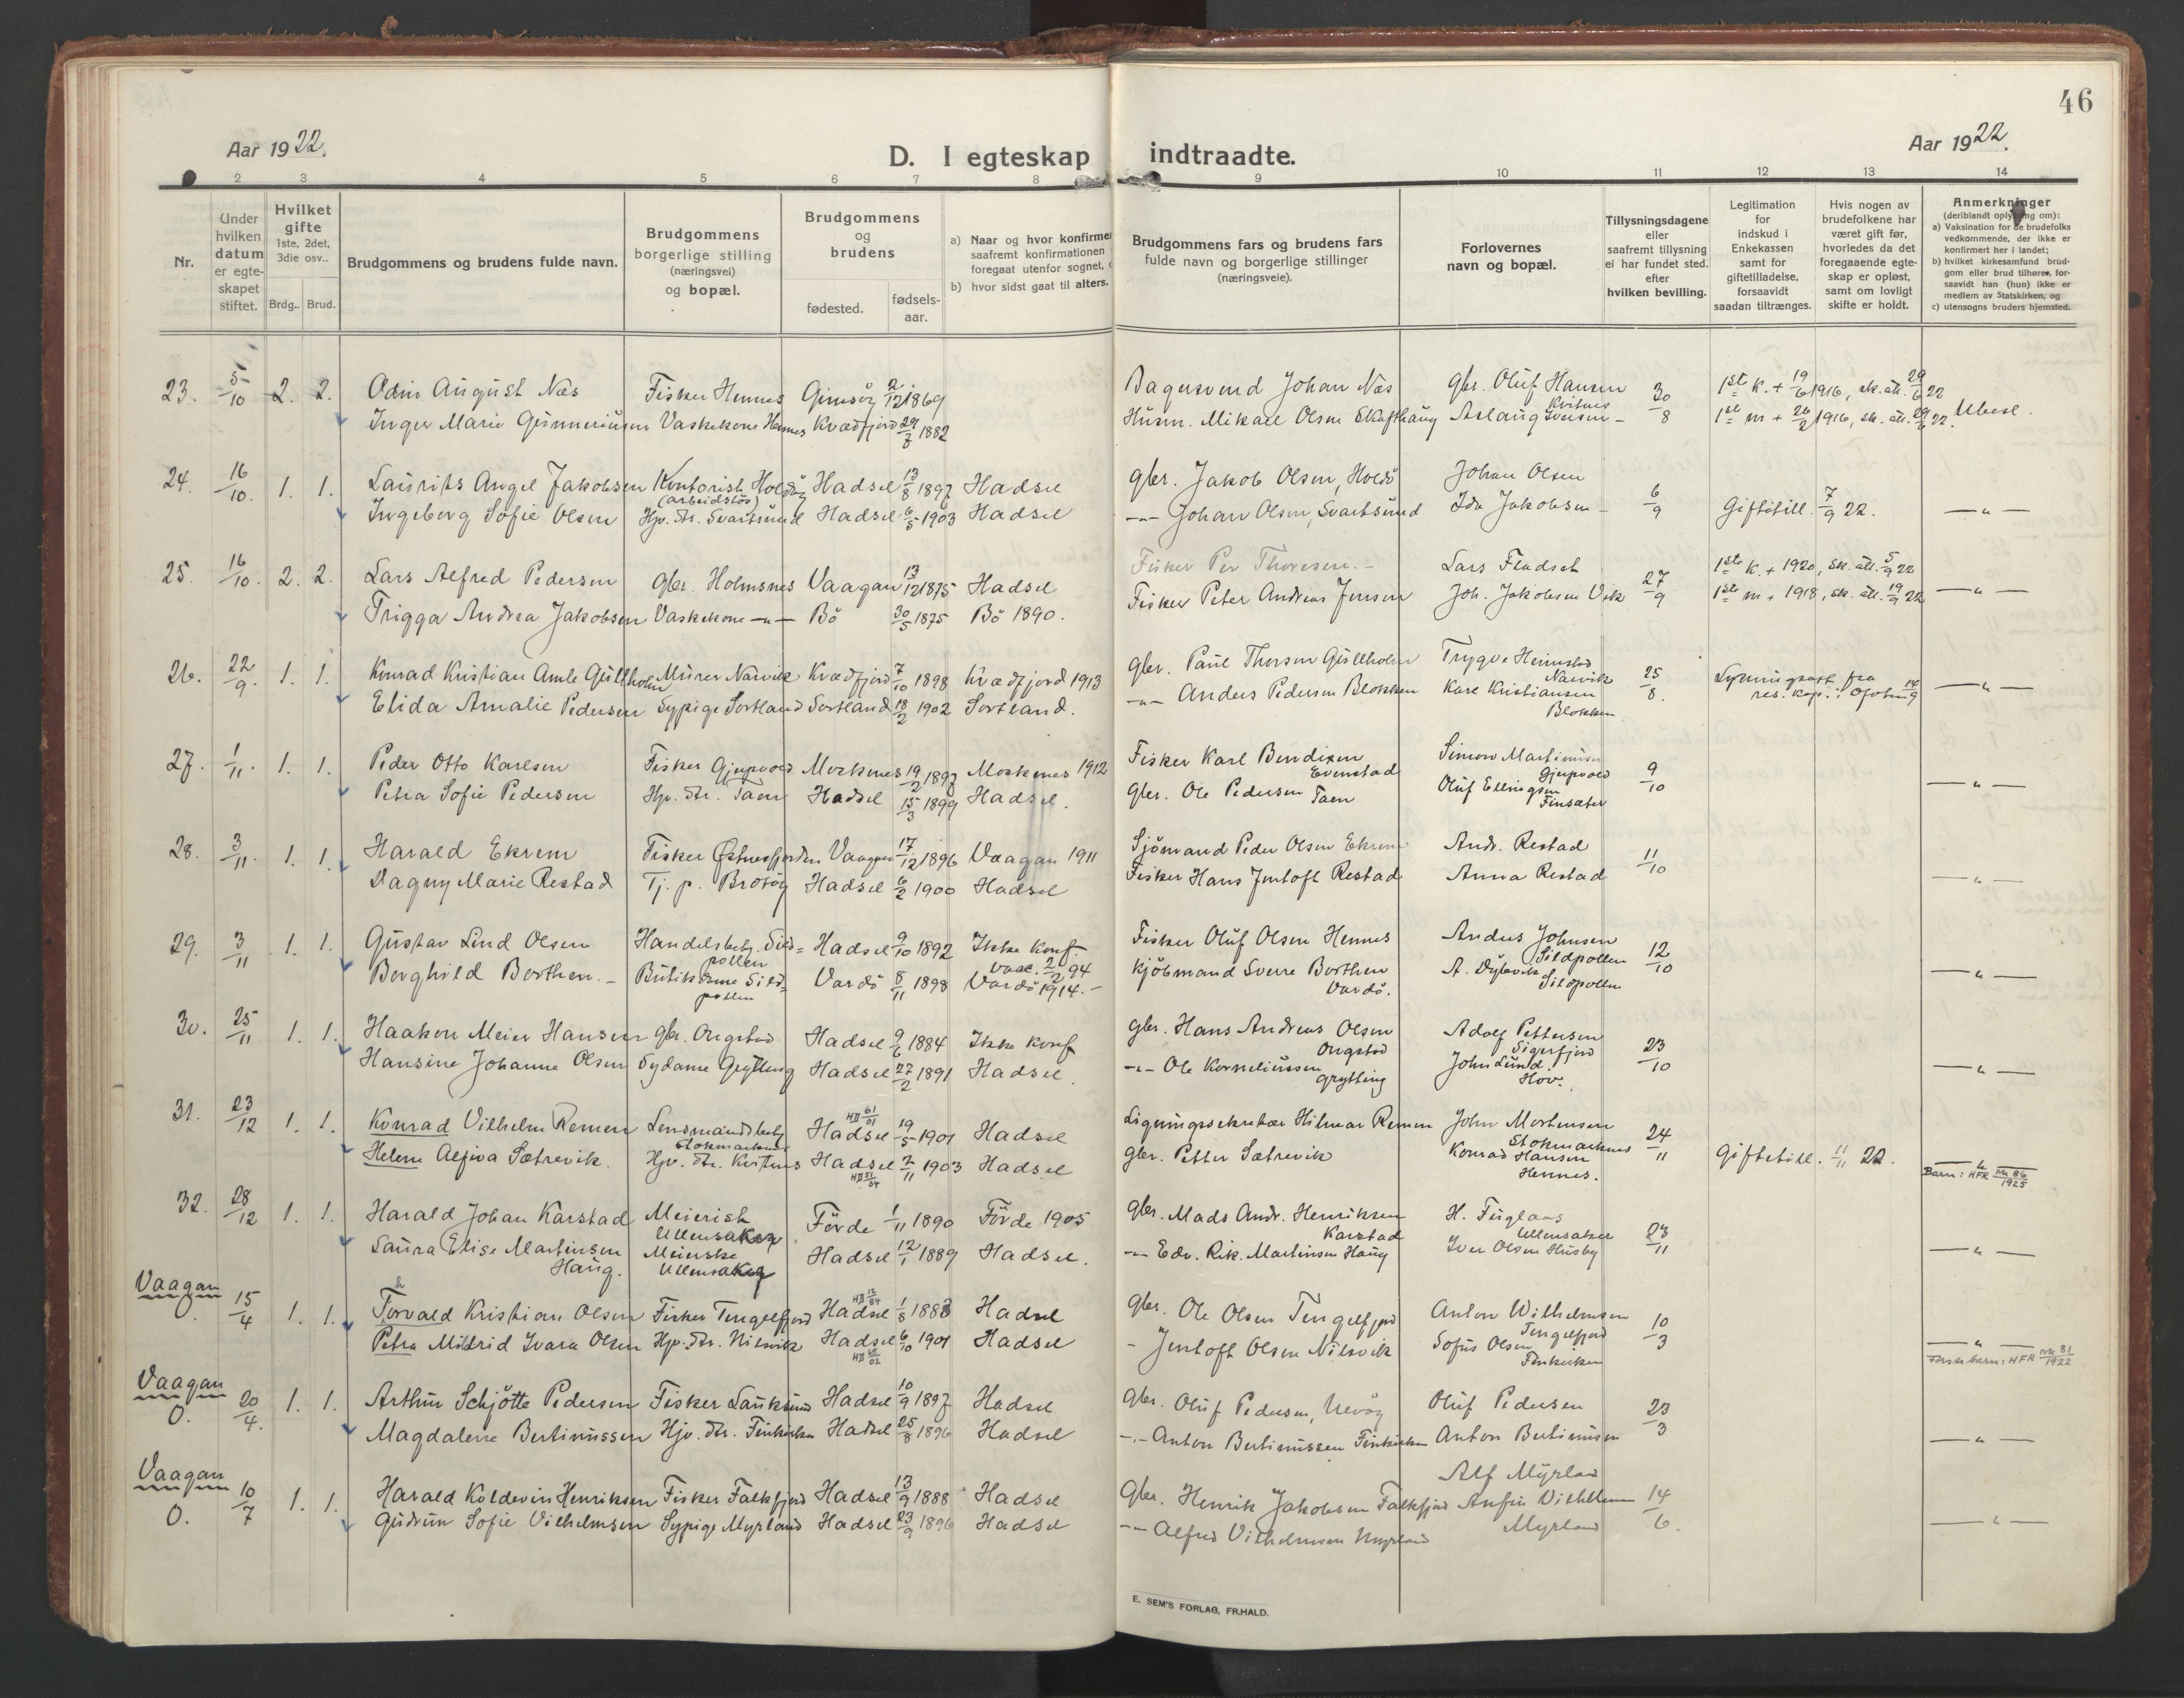 46
Aar 1922.
D. I egteskap indtraadte.
Aar 1922.
2 3 4 5 6 7 8 9 10 11 12 13 14
Nr.
Under hvilken datum er egte-skapet stiftet.
Hvilket gifte 1ste, 2det, 3die osv..
Brdg.. Brud.
Brudgommens og brudens fulde navn.
Brudgommens borgerlige stilling (næringsvei) og bopæl.
Brudgommens og brudens
fødested.
fødsels-aar.
a) Naar og hvor konfirme
saafremt konfirmationen
foregaat utenfor sognet,
b) hvor sidst gaat til alters.
Brudgommens fars og brudens fars
fulde navn og borgerlige stillinger
(næringsveie).
Forlovernes navn og bopæl.
Tillysningsdagene eller saafremt tillysning ei har fundet sted. efter hvilken bevilling.
Legitimation for indskud i Enkekassen samt for giftetilladelse, forsaavidt saadan tiltrænges.
Hvis nogen av brudefolkene har været gift før, hvorledes da det foregaaende egte-skap er opløst, samt om lovligt skifte er holdt.
Anmerkninger
(deriblandt oplysning om):
a) Vaksination for de brudefolks vedkommende, der ikke er konfirmert her i landet;
b) hvilket kirkesamfund brud-gom eller brud tilhører, for-saavidt han (hun) ikke er medlem av Statskirken, og
c) utensogns bruders hjemsted.
23. 5/10 2. 2. Odin August Næs Fisker Hennes Gimsøy 2/12 1869 Johan Næs gbr. Oluf Hansen 30/8 1ste k. + 19/6 1916, sk. att. 29/6 22
Inger Marie Gunneriussen Vaskekone Hennes Kvædfjord 29/7 1882 Husm. Mikael Olsen Aslaug Iversen - Kvitnes 1ste m + 26/2 1916, sk. att. 29/6 22. Ubesl.
24. 16/10. 1. 1. Laurits Angel Jakobsen Kontorist Holdøy (arbeidsløs) Hadsel 13/8 1897 Hadsel gbr. Jakob Olsen, Holdö Johan Olsen 6/9
Ingeborg Sofie Olsen Hjv. dtr. Svartsund Hadsel 6/5 1903 Hadsel -"- Johan Olsen, Svartsund Ida Jakobsen - Giftetill. 7/9 22. -"-
25. 16/10. 2. 2. Lars Alfred Pedersen gbr. Holmsnes Vaagan 13/12 1875 Hadsel Fisker Per Thoresen. - Lars Fladset 27/9 1ste k. + 1920, sk. att. 5/9 22
Trigga Andrea Jakobsen Vaskekone -"- Bö 30/5 1875 Bö 1890. Fisker Peter Andreas Jensen Joh. Jakobsen Vik 1ste m + 1918, sk. att. 19/9 22 -"-
26. 22/9. 1. 1. Konrad Kristian Amle Gullholm Murer Narvik Kvædfjord 7/10 1898 Kvædfjord 1913 gbr. Paul Thorsen Gullholm Trygve Heimstad Narvik 25/8. Lysningsatt fra
Elida Amalie Pedersen Sypige Sortland Sortland 18/2 1902 Sortland. -"- Anders Pedersen Blokken Kare Kristiansen Blokken res. kap. i Ofoten 14/9 -"-
27. 1/11. 1. 1. Peder Otto Karlsen Fisker Gjepvold Moskenes 19/2 1897 Moskenes 1912 Fisker Karl Bendixen Evenstad Simon Martinsen Gjepvold 9/10
Petra Sofie Pedersen Hjv. dtr. Taen Hadsel 15/3 1899 Hadsel. gbr. Ole Pedersen Taen Oluf Ellingsen Finsæter -"-
28. 3/11. 1. 1. Harald Ekrem Fisker Østnesfjorden Vaagan 17/12 1896 Vaagan 1911 Sjömand Peder Olsen Ekrem Andr. Restad 11/10
Dagny Marie Restad Tj. p. Brotøy Hadsel 6/2 1900 Hadsel Fisker Hans Jentoft Restad Anna Restad -"-
29. 3/11 1. 1. Gustav Lind Olsen Handelsbetj. Sild=pollen Hadsel 9/10 1892 Ikke Konf. vacc. 2/2 94 Fisker Oluf Olsen Hennes Anders Johnsen Sildpollen 12/10
Borghild Borthen. - Butikdame Sild=pollen Vardö 8/11 1898 Vardö 1914. - Kjöbmand Sverre Borthen Vardö. A. Dybvik Sildpollen -"-
30. 25/11 1. 1. Haakon Meier Hansen gbr. Ongstad Hadsel 9/6 1884 Ikke konf gbr. Hans Andreas Olsen Ongstad Adolf Pettersen Sigerfjord 23/10
Hansine Johanne Olsen Sydame Grytting Hadsel 27/2 1891 Hadsel. -"- Ole Korneliussen Grytting John Lund. Hov. -"-
31. 23/12 1. 1. Konrad Vilhelm Remen Lensmandsbetj. Stokmarknes HD 61/01 Hadsel 19/5 1901 Hadsel Ligningssekretær Hilmar Remen John Mortensen Stokmarknes 24/11
Helene Alfiva Sætrevik. Hjv. dtr. Kvitnes Hadsel 2/11 1903 Hadsel gbr. Petter Sætrevik Konrad Hansen Hennes. Giftetill. 11/11 22. -"-
HD 51/04 Barn: HFR nr 86/1925
32. 28/12 1. 1. Harald Johan Karstad Meierist Ullensaker Förde 1/11 1890 Förde 1905 gbr. Mads Andr. Henriksen Karstad H. Fuglaas Ullensaker 23/11
Laura Elise Martinsen Haug. Meierske Ullensaker Hadsel 12/1 1889 Hadsel. -"- Edv. Rik. Martinsen Haug Iver Olsen Husby -"-
Vaagan
O. 15/4 1. 1. Torvald Kristian Olsen Fisker Tengelfjord Hadsel 1/8 1883 Hadsel gbr. Ole Olsen Tengelfjord Anton Wilhelmsen Tengelfjord 10/3
Petra Mildrid Ivara Olsen Hjv. dtr. Nilsvik Hadsel 6/10 1901 Hadsel - Jentoft Olsen Nilsvik Sofus Olsen Finkirken -"-
barn: HFR nr 81/1922
Vaagan
O. 20/4. 1. 1. Arthur Schjötte Pedersen Fisker Lauksund Hadsel 10/9 1897 Hadsel gbr. Oluf Pedersen, Ulvöy Oluf Pedersen 23/3
Magdalene Bertinussen Hjv. dtr. Finkirken Hadsel 25/8 1896 Hadsel -"- Anton Bertinussen Finkirken Anton Bertinusen -"-
Vaagan
O. 10/7 1. 1. Harald Koldevin Henriksen Fisker Falkfjord Hadsel 13/9 1888 Hadsel gbr. Henrik Jakobsen Falkfjord Alf Myrland 14/6.
Gudrun Sofie Vilhelmsen Sypige Myrland Hadsel 23/9 1896 Hadsel -"- Alfred Vilhelmsen Myrland Myrland -"-
E. SEM'S FORLAG, FR.HALD.